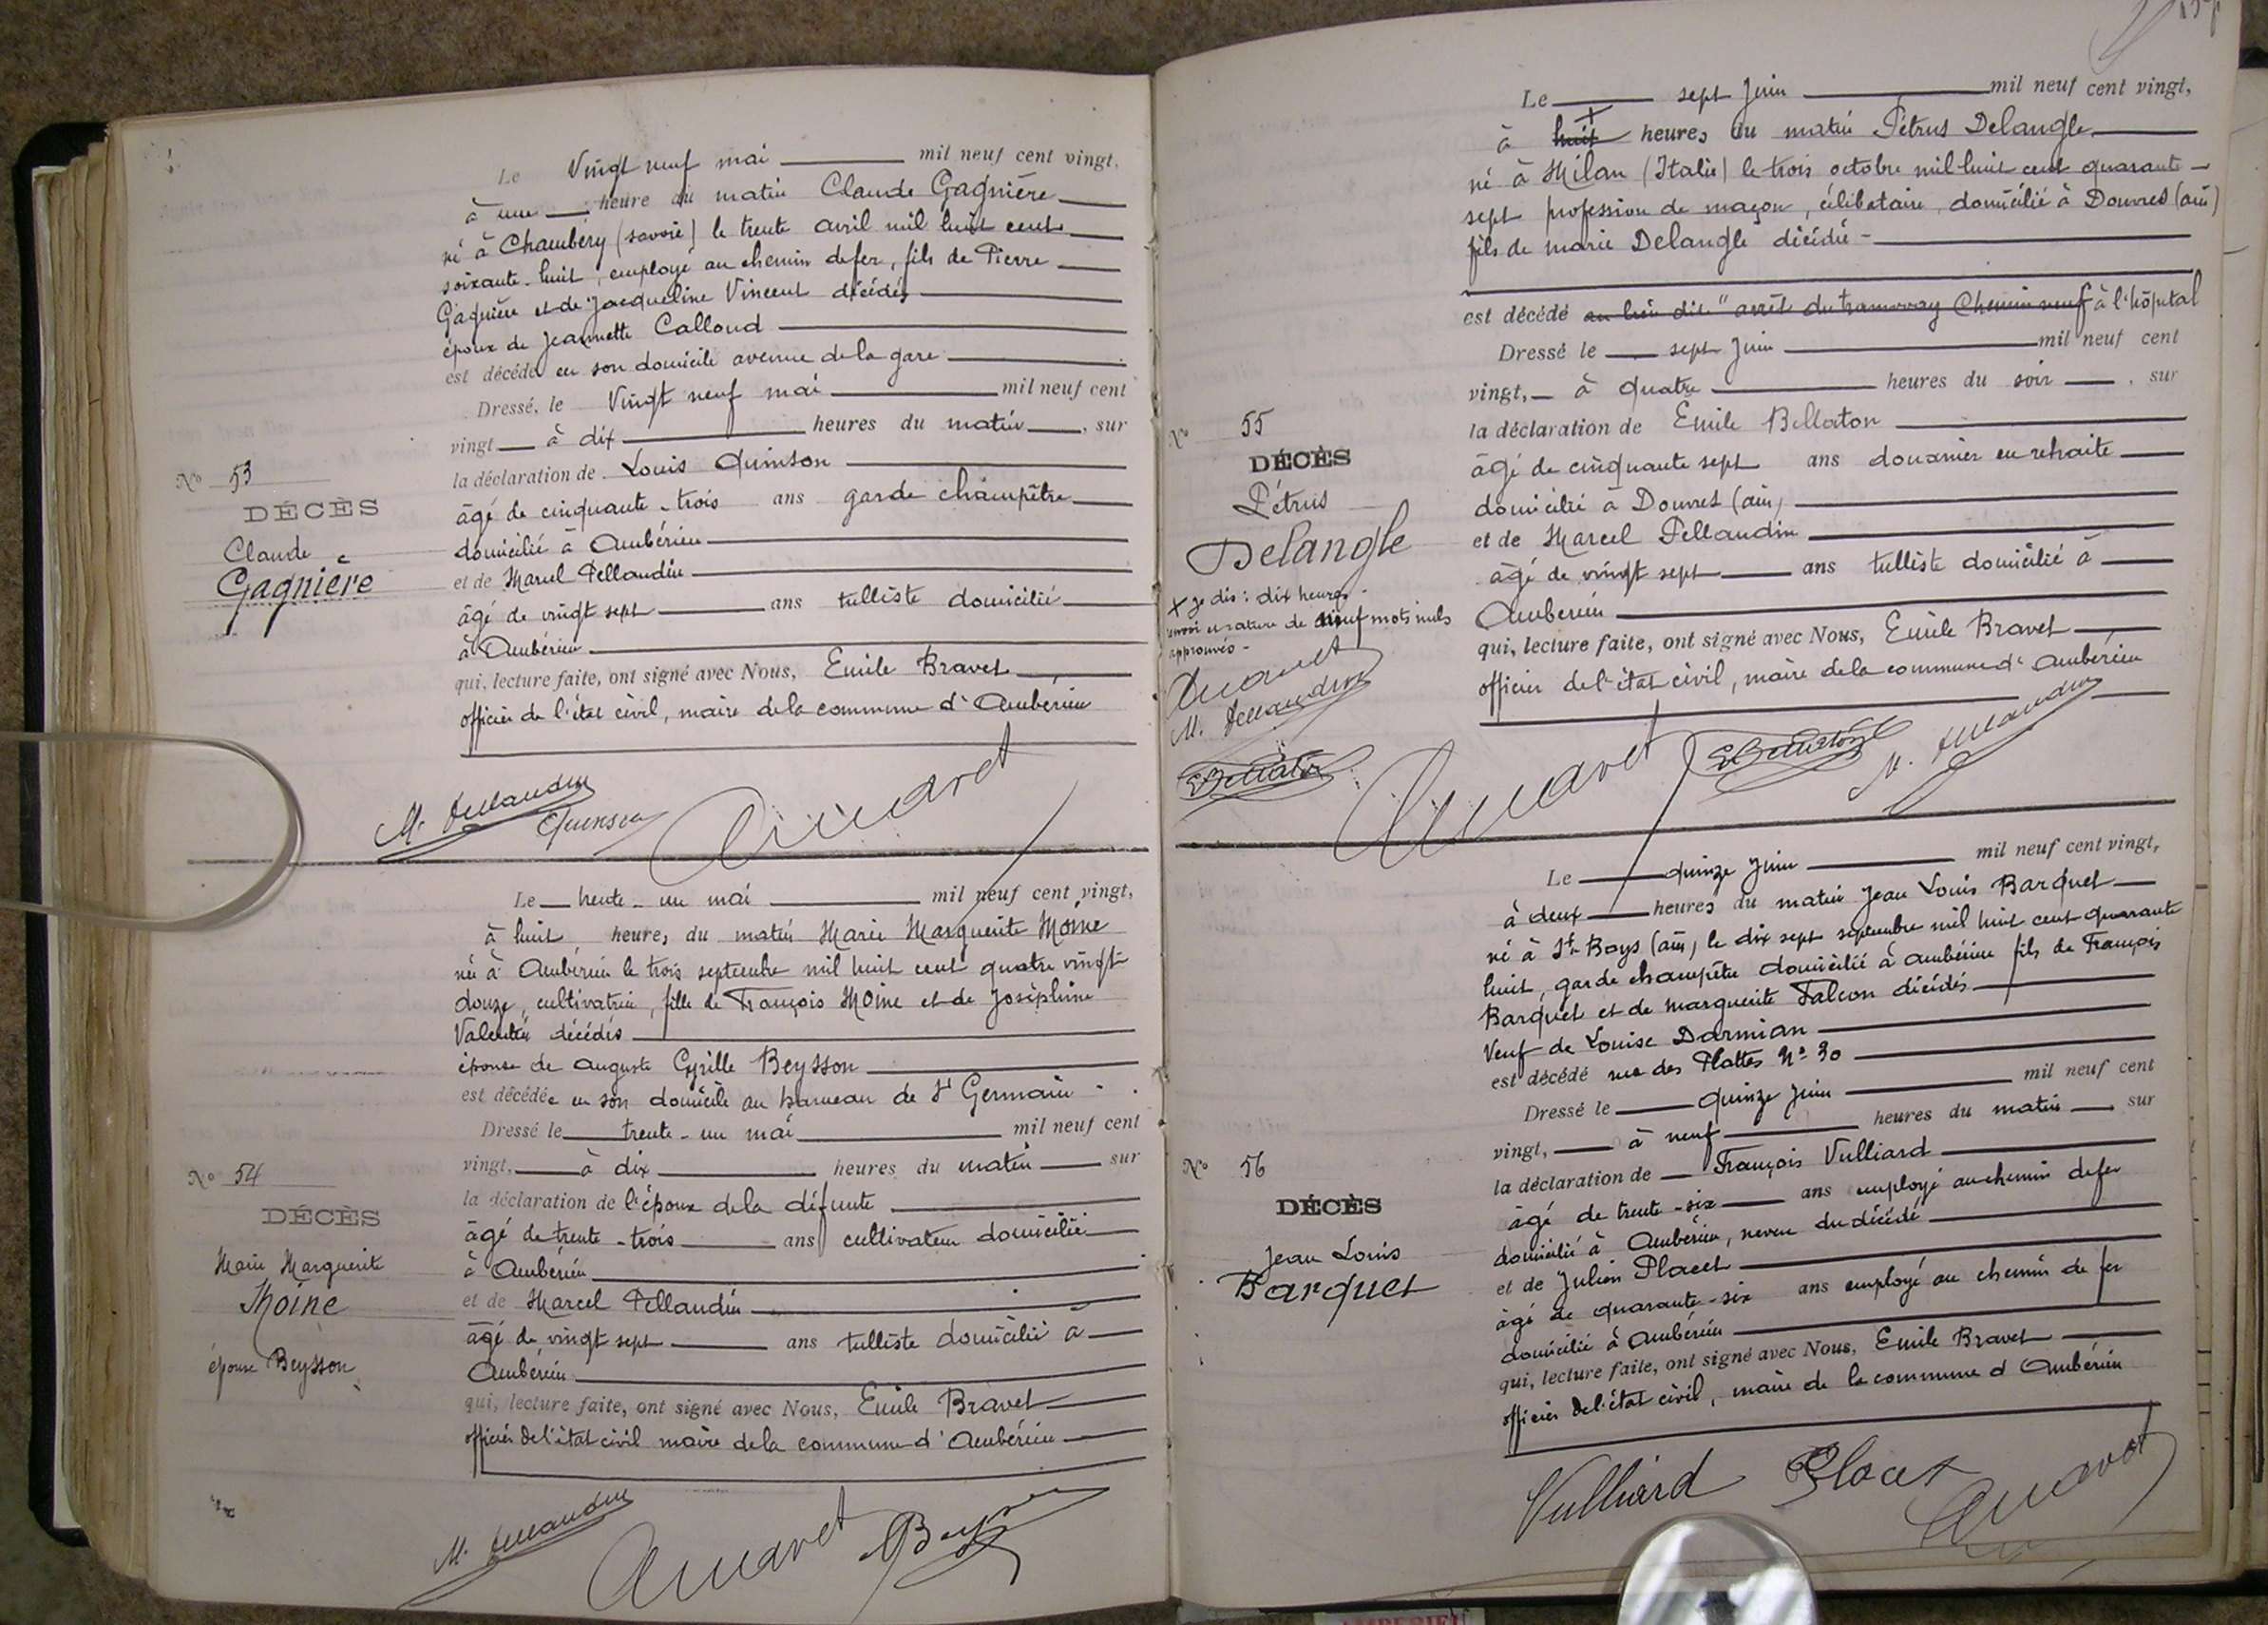 Le Vingt neuf mai mil neuf cent vingt,
à une heure du matin Claude Gagnière
né à Chambéry (savoie) le trente avril mil huit cent
soixante-huit, employé au chemin defer, fils de Pierre
Gagnière et de Jacqueline Vincent décédés
époux de Jeannette Calloud
est décédé en son domicile avenue dela gare
Dressé, le Vingt neuf mai mil neuf cent
vingt à dix heures du matin, sur
la déclaration de Louis Quinson
âgé de cinquante-trois ans garde champêtre
domicilié à Ambérieu
et de Marcel Pellaudin
âgé de vingt sept ans tulliste domicilié
à Ambérieu
qui, lecture faite, ont signé avec Nous, Emile Bravet
officier de l'état civil, maire dela commune d'Ambérieu
No 53
DÉCÈS
Claude
Gagnière
M. Pellaudin
Quinson
Le trente-un mai mil neuf cent vingt,
à huit heures du matin Marie Marguerite Moine
née à Ambérieu le trois septembre mil huit cent quatre vingt
douze, cultivatrice, fille de François Moine et de Joséphine
Valentin décédés
épouse de Auguste Cyrille Beysson
est décédée en son domicile au hameau de St Germain
Dressé le trente-un mai mil neuf cent
vingt, à dix heures du matin sur
la déclaration de l'époux dela défunte
âgé de trente-trois ans cultivateur domicilié
à Ambérieu
et de Marcel Pellaudin
âgé de vingt sept ans tulliste domicilié à
Ambérieu
qui, lecture faite, ont signé avec Nous, Emile Bravet
officier de l'état civil maire dela commune d'Ambérieu
No 54
DÉCÈS
Marie Marguerite
Moine
épouse Beysson
M. Pellaudin
Beysson
Le sept Juin mil neuf cent vingt,
à huit heures du matin Pétrus Delangle
né à Milan (Italie) le trois octobre mil huit cent quarante-
sept profession de maçon, célibataire, domicilié à Douvres (ain)
fils de marie Delangle décédée-
est décédé au lieu dit "arrêt du tramway Chemin neuf à l'hôpital
Dressé le sept Juin mil neuf cent
vingt, à quatre heures du soir, sur
la déclaration de Emile Bellaton
âgé de cinquante sept ans douanier en retraite
domicilié à Douvres (ain)
et de Marcel Pellaudin
âgé de vingt sept ans tulliste domicilié à
Ambérieu
qui, lecture faite, ont signé avec Nous, Emile Bravet
officier de l'état civil, maire dela commune d'Ambérieu
No 55
DÉCÈS
Pétrus
Delangle
X Je dis: dix heures-
rature de neuf mots nuls
approuvés-
M. Pellaudin
M. Pellaudin
Le quinze Juin mil neuf cent vingt,
à deux heures du matin Jean Louis Barquet
né à St Boys (ain) le dix sept septembre mil huit cent quarante
huit, garde champêtre domicilié à Ambérieu fils de François
Barquet et de marguerite Falcon décédés
Veuf de Louise Darmian
est décédé rue des Plattes No 30
Dressé le quinze Juin mil neuf cent
vingt, à neuf heures du matin sur
la déclaration de François Vulliard
âgé de trente-six ans employé au chemin defer
domicilié à Ambérieu, neveu du décédé
et de Julien Placet
âgé de quarante-six ans employé au chemin de fer
domicilié à Ambérieu
qui, lecture faite, ont signé avec Nous, Emile Bravet
officier de l'état civil, maire de la commune d'Ambérieu
No 56
DÉCÈS
Jean Louis
Barquet
Vulliard Placet